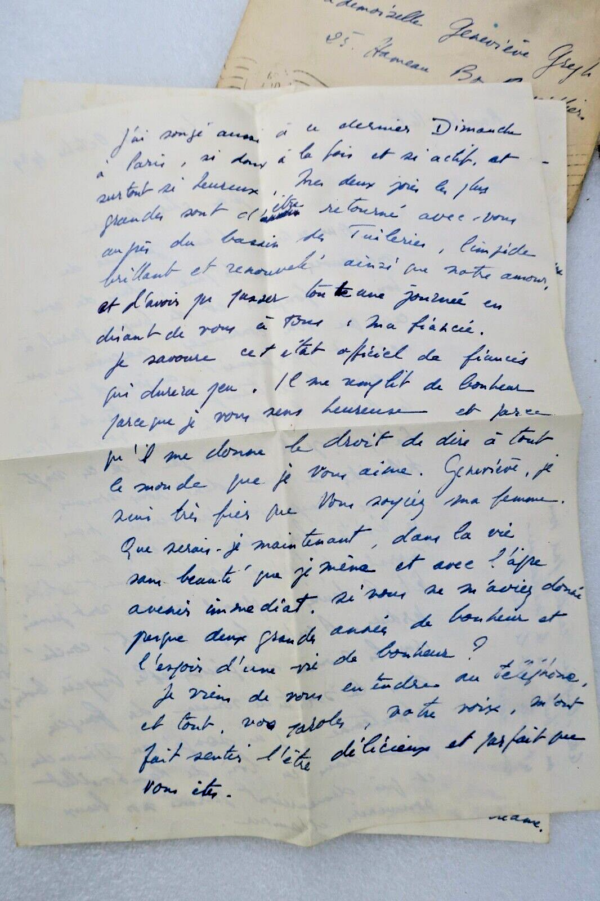 demoiselle Geneviève Gregh
25. Hameau
J'ai songé aussi à ce dernier Dimanche
à Paris, si doux à la fois et si actif, et
surtout si heureux. Mes deux joies les plus
grandes sont d'être retourné avec vous
auprès du bassin des Tuileries, limpide
brillant et renouvelé ainsi que notre amour,
et d'avoir pu passer toute une journée en
disant de vous à tous : ma fiancée.
Je savoure cet état officiel de fiancés
qui durera peu. Il me remplit de bonheur
parce que je vous sens heureuse et parce
qu'il me donne le droit de dire à tout
le monde que je vous aime. Geneviève, je
suis très fier que vous soyiez ma femme.
Que serais-je maintenant, dans la vie
sans beauté que je mène et avec l'âpre
avenir immédiat, si vous ne m'aviez donné
presque deux grandes années de bonheur et
l'espoir d'une vie de bonheur ?
Je viens de vous entendre au téléphone,
et tout, vos paroles, votre voix, m'ont
fait sentir l'être délicieux et parfait que
vous êtes.